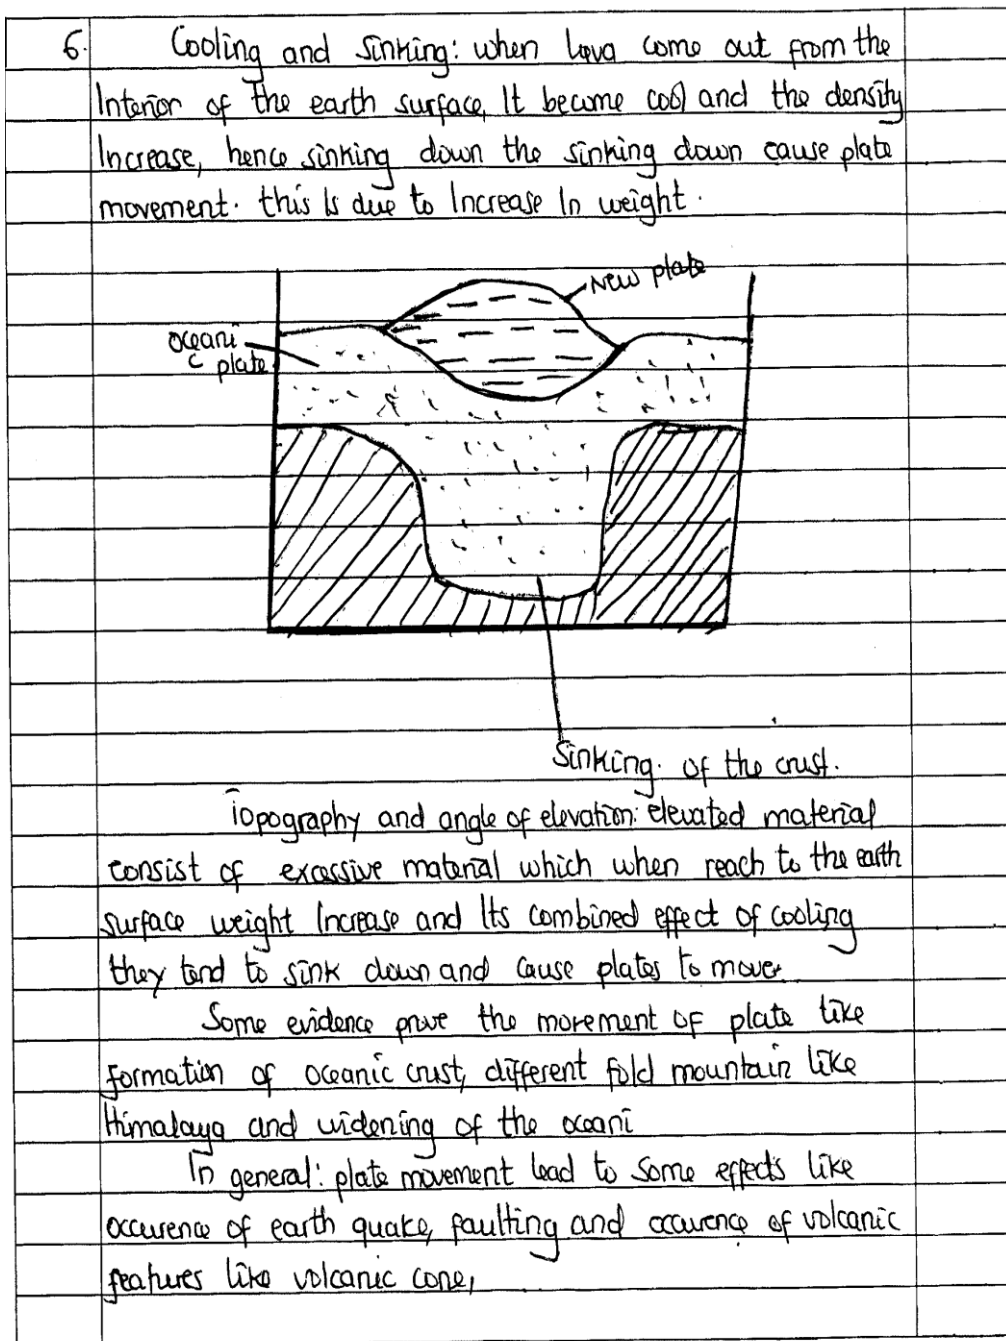 6. Cooling and sinking: when lava come out from the
Interior of the earth surface, It become cool and the density
Increase, hence sinking down the sinking down cause plate
movement. this is due to Increase In weight.
New plate
oceani
c plate
Sinking. of the crust.
Topography and angle of elevation: elevated material
consist of excessive material which when reach to the earth
surface weight Increase and Its combined effect of cooling
they tend to sink down and cause plates to move.
Some evidence prove the movement of plate like
formation of oceanic crust, different fold mountain like
Himalaya and widening of the oceani
In general: plate movement lead to some effects like
occurence of earth quake, faulting and occurence of volcanic
features like volcanic cone,